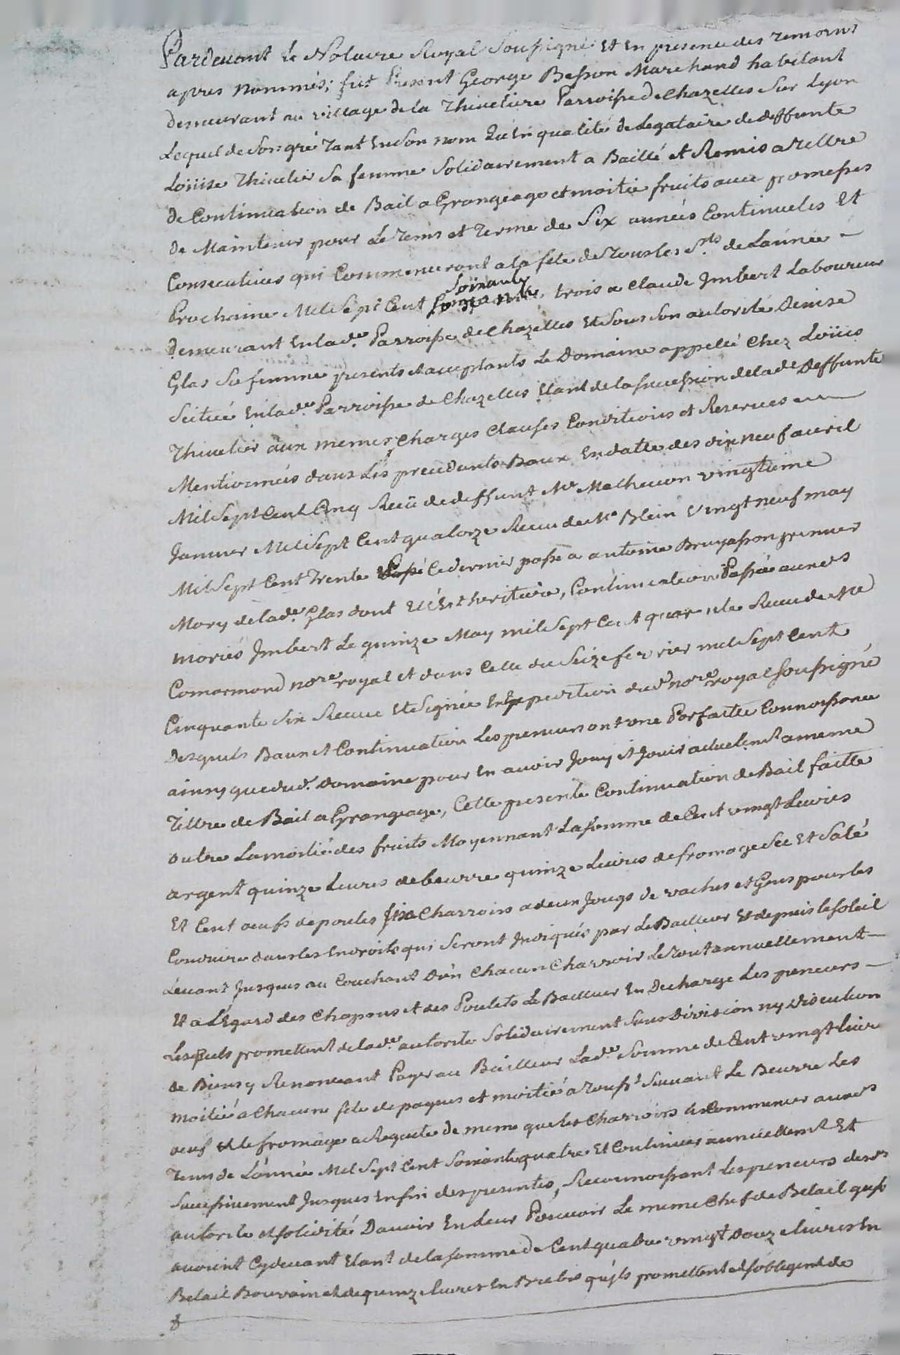 Pardevant Le Notaire Royal Soussigné Et En presence des temoins
apres nommés; fut Present George Besson Marchand habitant
demeurant au village de la Thiveliere Parroisse de Chazelles Sur Lyon
Lequel de Son gré tant En Son nom qu'En qualité de Legataire de deffunte
Loüise Thivelier Sa femme Solidairement a Baillé et Remis a tiltre
de Continuation de Bail a Grangeage et moitié fruits avec promesses
de Maintenir pour Le tems et terme de Six années Continueles Et
Consecutives qui Commenceront a la fete de Tous les Sts de L'année
Prochaine Mil Sept Cent Soixante trois a Claude Imbert Laboureur
demeurant En lade Parroisse de Chazelles Et Sous Son autorité Denise
Glas Sa femme presents et acceptants Le Domaine appellé Chez Loüis
Scitué En lade Parroisse de Chazelles Etant de la succession de lade Deffunte
Thivelier aux memes Charges Clauses Conditions et Reserves
Mentionnées dans Les precedents Baux En datte des dix neuf avril
Mil Sept Cent Cinq Reçü de deffunt Me vingtieme
Janvier Mil Sept Cent quatorze Receu de Me Blein vingt neuf may
Mil Sept Cent Trente Ce dernier passé a antoine premier
Mary de lade Glas dont Elle Est heritiere, Continuation Passée auxds
mariés Imbert Le quinze May mil Sept Cent quarante Receu de Me
Comarmond nore royal et dans Celle du Seize fevrier mil Sept Cent
Cinquante Six Receue Et Signée En Expedition dud nore royal Soussigné
Desquels Baux et Continuation Les preneurs ont une Parfaitte Connoissance
ainsy que dud. Domaine pour En avoir Jouy et Jouir actuelement a meme
Tiltre de Bail a Grangeage, Cette presente Continuation de Bail faitte
outre La moitié des fruits Moyennant La Somme de Cent vingt Livres
argent quinze Livres de beurre quinze Livres de fromage Sec Et Salé
Et Cent oeufs de poules six Charrois a deux Jougs de vaches et Gens pour les
Conduire dans les Endroits qui Seront Indiqués par Le Bailleur Et depuis le Soleil
Levant Jusques au Couchant D'un Chacun Charroir Le tout annuellement
Et a L'Egard des Chapons et des Poulets Le Bailleur En Decharge Les preneurs
Lesquels promettent de lade autorité Solidairement Sans Division ny Discution
de Biens y Renonceant Payer au Bailleur Lade Somme de Cent vingt Livres
moitié a Chacune fete de paques et moitié a Touss.t Suivant Le Beurre Les
oeuf Et le fromage a Requete de meme que les Charrois a Commencer aux ds
Tems de L'année Mil Sept Cent Soixante quatre Et Continuer annuellemt Et
Successivement Jusques En fin des presentes, Reconnoissant Les preneurs desdes
autorité et solidité D'avoir En Leur Pouvoir Le meme Chef de Betail qu'ils
avoient Cydevant Etant de la somme de Cent quatre vingt Douze Livres En
Betail Bouvain et de quinze Livres En Brebis qu'ils promettent et s'obligent de